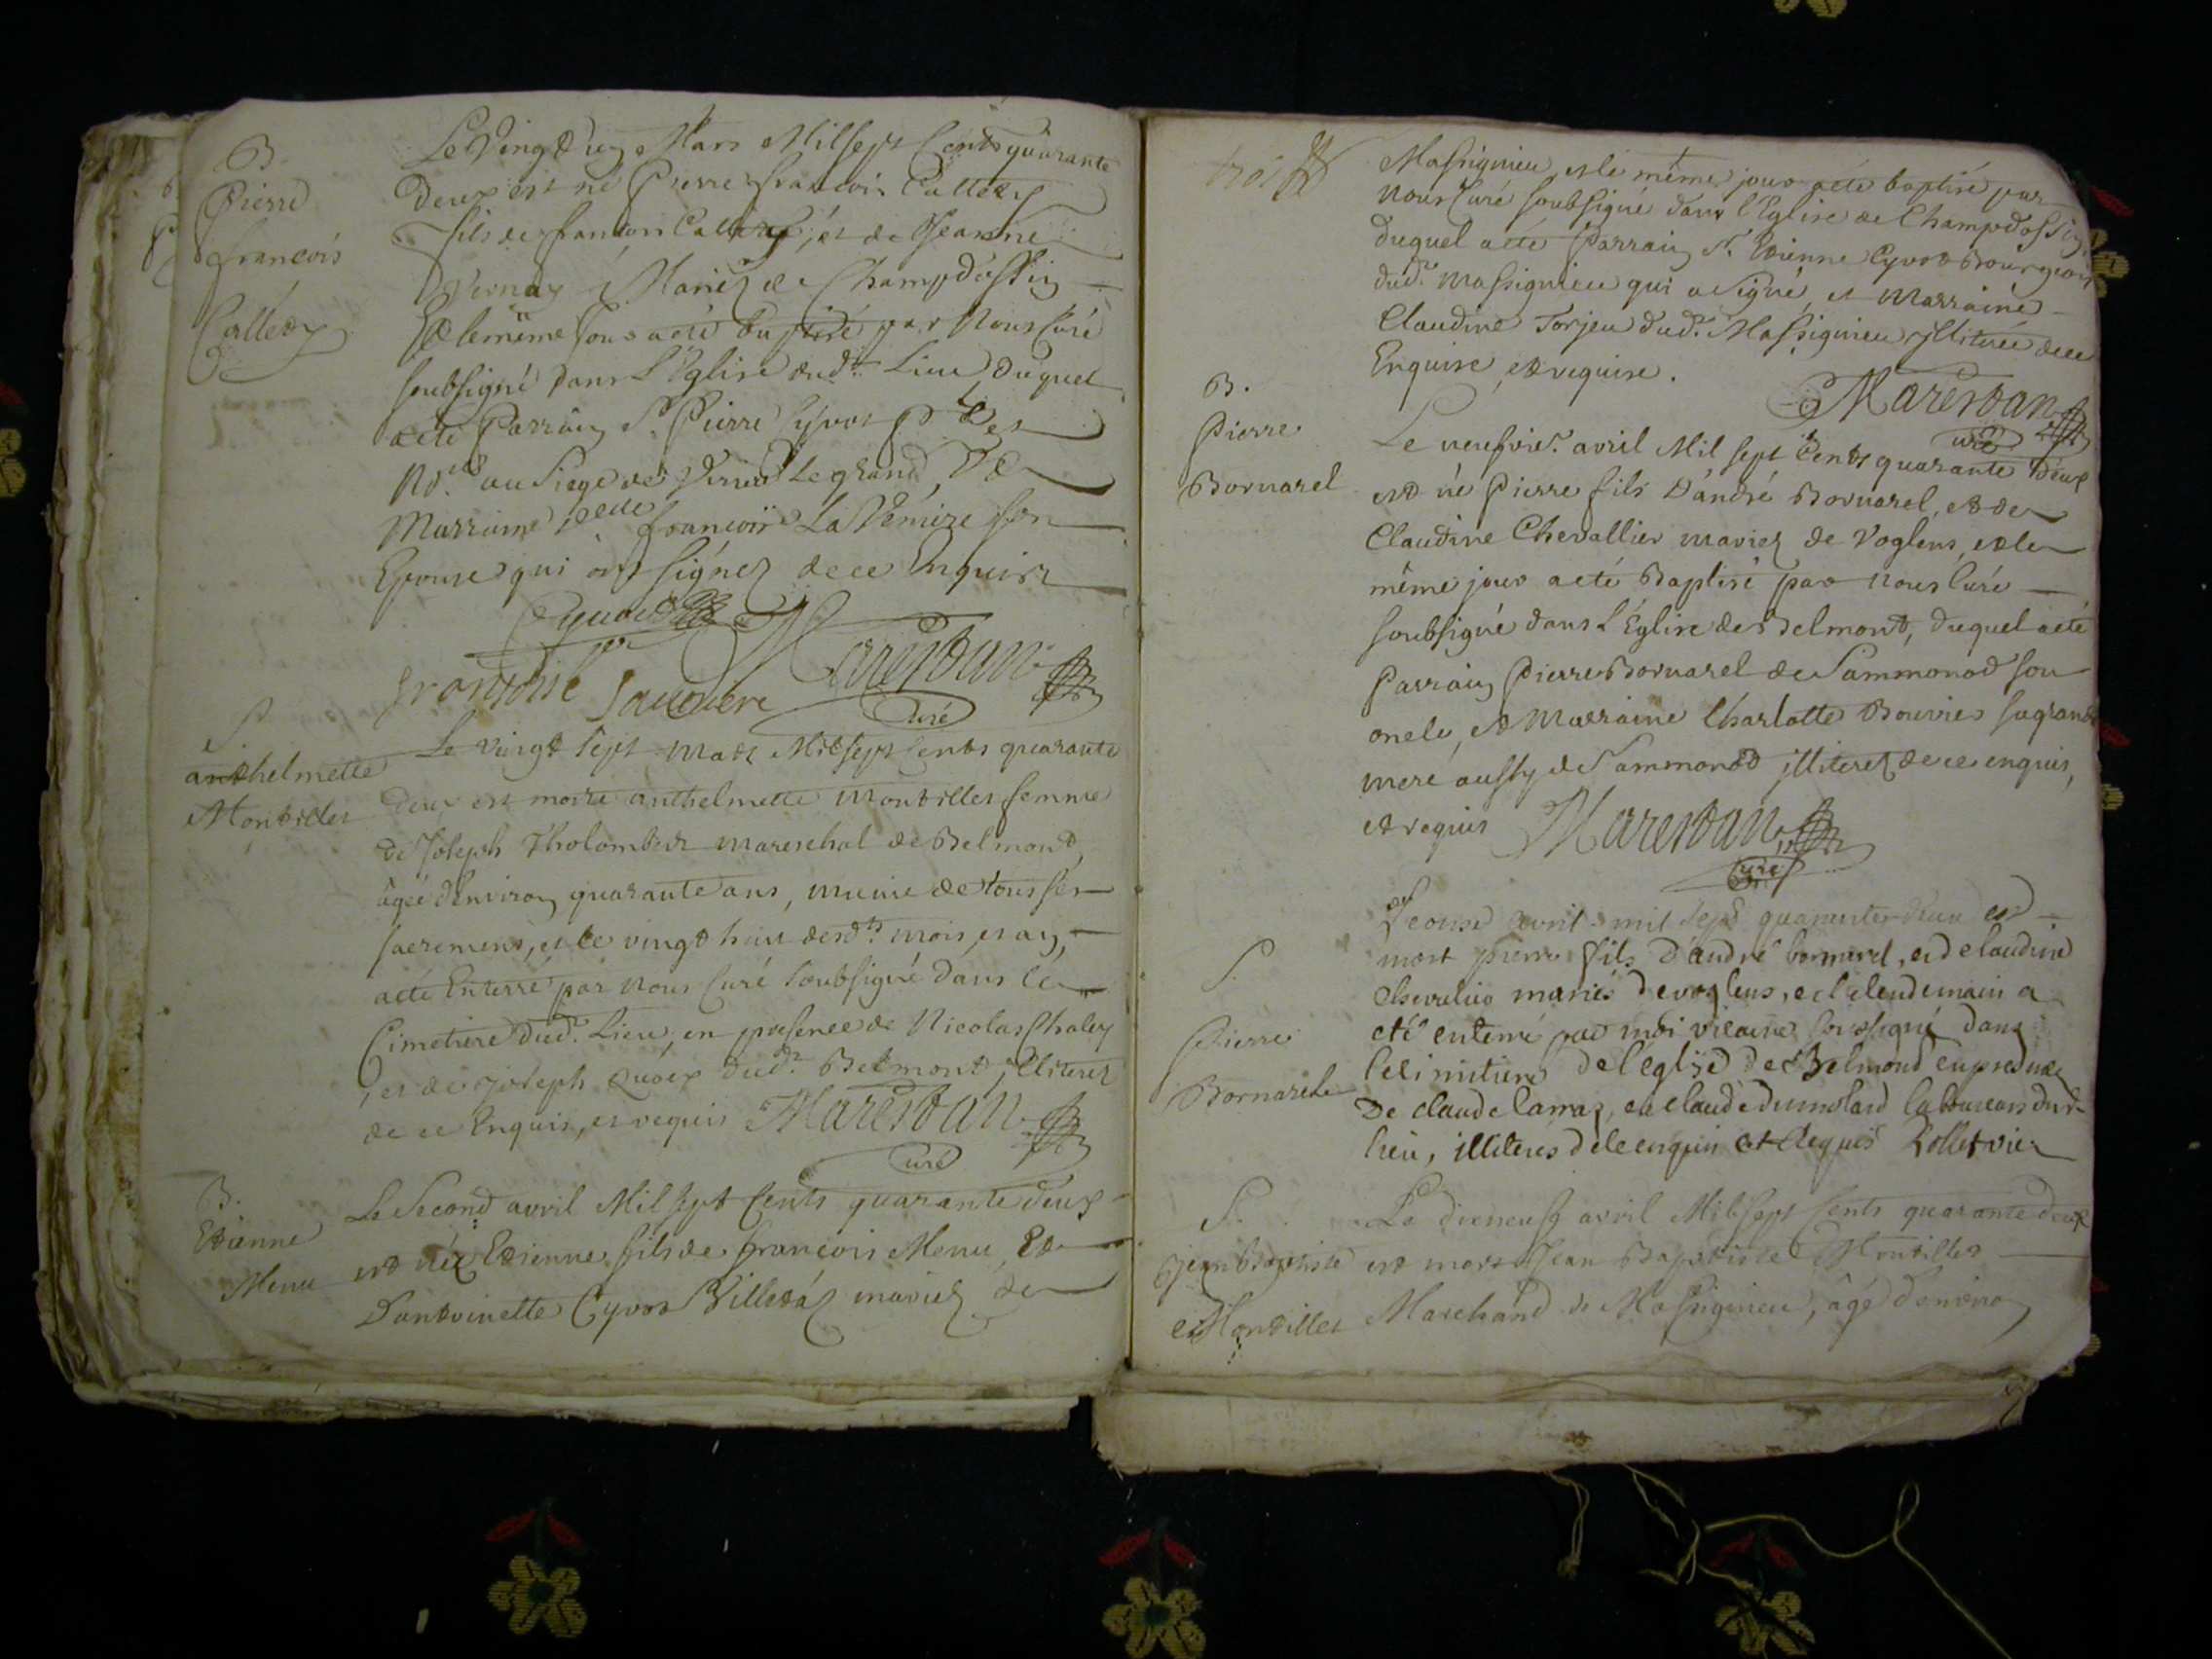 B.
Pierre
françois
Callety
Le Vingt uy Mars Mil sept Cents quarante
Deux est né Pierre françois Callety
fils de françois Callety, et de Jeanne
Vernay Mariez de Champdossin
Et le même Jour a eté baptisé par Nous Curé
soubsigné dans L'Eglise dud.t Lieu, duquel
a eté Parrain S.r Pierre Cyvot et
No.re au Siege de Virieu Le grand, Et
Marraine D.elle françoise La Vernière son
Epouse qui ont signéz de ce Enquis
Cyvoct Marestan
françoise Curé
S.
anthelmette
Montillet
Le vingt Sept mars Mil sept Cents quarante
deux est morte anthelmette Montillet femme
de Joseph Tholombert mareschal de Belmont,
âgée d'environ quarante ans, munie de tous ses
sacremens, et le vingt huit desd.ts mois, et an,
a eté Enterré par nous Curé soubsigné dans le
Cimetiere dud.t Lieu, en presence de Nicolas Chaley
et de Joseph dud.t Belmont, Illiterez
de ce Enquis, et requis Marestan
Curé
B.
Etienne
Menu
Le Second avril Mil sept Cents quarante deux
est néz Etienne fils de françois Menu, Et
D'antoinette Cyvot Billietáz mariez de
Massignieu, et le même jour a eté baptisé par
nous Curé soubsigné dans l'Eglise de Champdossin,
duquel a eté Parrain S.r Etienne Cyvot Bourgeois
dud.t Massignieu qui a signé, et Marraine
Claudine Torjeu dud.t Massignieu Illiterée de ce
Enquise, et requise.
Marestan
curé
B.
Pierre
Bornarel
Le neufvie.e avril Mil sept Cents quarante deux
est né Pierre fils D'andré Bornarel, et de
Claudine Chevallier mariez de Voglens, et le
même jour a eté Baptisé par nous Curé
soubsigné dans L'Eglise de Belmont, duquel a eté
Parrain Pierre Bornarel de Sammonod son
oncle, et Marraine Charlotte Bouvier sa grand
mere aussy de Sammonod illiterez de ce enquis,
et requis Marestan
Curé
S.
Pierre
Bornarel
Le onse avril mil sept quarante deux est
mort pierre fils d'andré bornarel, et de claudine
chevalier mariés de voglens, et le lendemain a
eté enterré par moi vicaire soussigné dans
le cimitiere de l'eglise de Belmond en presence
De claude larraz, et claude dumolard laboureurs dud.
lieu, illiteres de ce enquis et requis Rollet vic.
S.
Jean Baptiste
Montillet
Le dixneufe avril Mil sept Cents quarante deux
est mort Jean Baptiste Montillet
Marchand de Massignieu, âgé d'environ